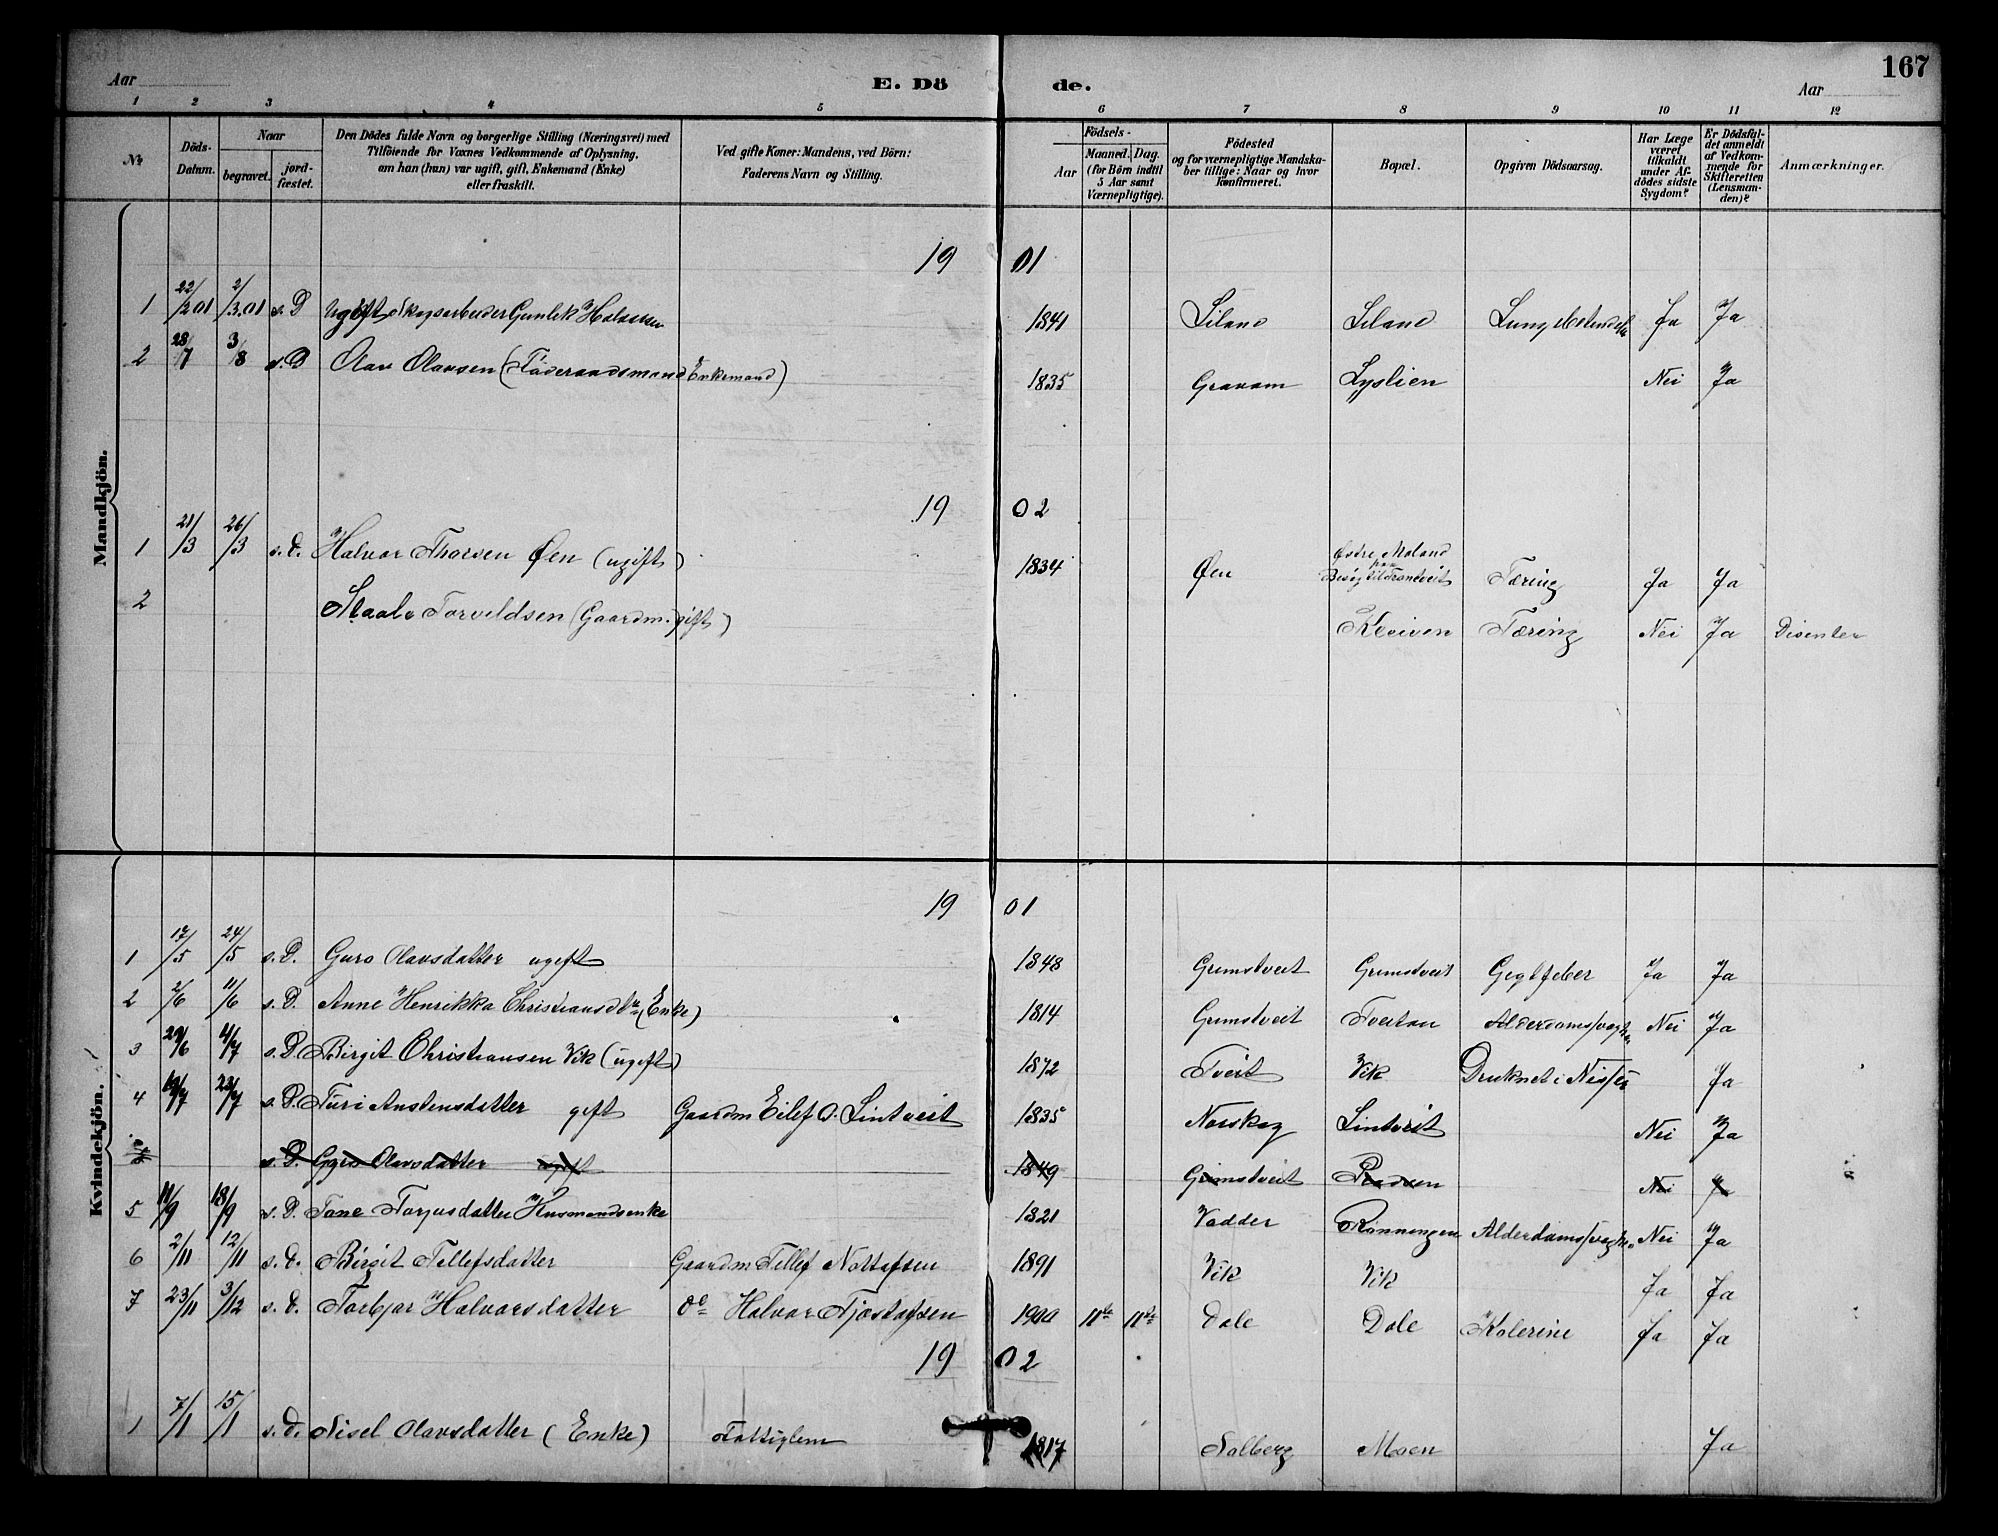 167
Aar
E. Dö
de.
Aar
1 2 3 4 5 6 7 8 9 10 11 12
No
Döds-
Datum.
Naar
begravet.
jord-
fæstet.
Den Dödes fulde Navn og borgerlige Stilling (Næringsvei) med
Tilföiende for Voxnes Vedkommende af Oplysning,
om han (hun) var ugift, gift, Enkemand (Enke)
eller fraskilt.
Ved gifte Koner: Mandens, ved Börn:
Faderens Navn og Stilling.
Aar
Födsels-
Maaned. Dag.
(for Börn indtil
5 Aar samt
Værnepligtige).
Födested
og for værnepligtige Mandska-
ber tillige: Naar og hvor
konfirmeret.
Bopæl.
Opgiven Dödsaarsag.
Har Læge
været
tilkaldt
under Af-
dödes sidste
Sygdom?
Er Dödsfal-
det anmeldt
af Vedkom-
mende for
Skifteretten
(Lensman-
den)?
Anmærkninger.
Mandkjön.
19 01
1 22/2 01 2/3.01 s. D Ugift Skogsarbeider Gunlek Halvorsen 1841 Siland Siland Ja Ja
2 28/7 3/8 s. D Olav Olavsen (Föderaadsmand Enkemand) 1835 Gravam Lyslien Nei Ja
19 02
1 21/3 26/3 s. d. Halvor Thorsen Øen (ugift) 1834 Øen Østre Moland
paa
Besøg til Frantveit Tæring Ja Ja
2 Staale Torveldsen (Gaardm. gift) Kleiven Tæring Nei Ja Disenter
Kvindekjön.
19 01
1 17/5 24/5 s. D. Guro Olavsdatter ugift 1848 Grimstveit Grimstveit Gigtfeber Ja Ja
2 2/6 11/6 s. D. Anne Henrikka Christiansdtr (Enke) 1814 Grimstveit Tveitan Alderdomssvaghed Nei Ja
3 29/6 4/7 s. D. Birgit Christiansen Vik (ugift) 1872 Tveit Vik Druknet i Nisser Ja
4 19/7 23/7 s. D. Turi Anstensdatter gift Gaardm Eilef O. Sintveit 1835 Norskog Sintveit Nei Ja
s. D. Gyro Olavsdatter ugift 1849 Grimstveit Nei Ja
5 11/9 18/9 s. D. Tone Torjusdatter Husmandsenke 1821 Vadder Rønningen Alderdomssvaghed Nei Ja
6 2/11 12/11 s. d. Birgit Tellefsdatter Gaardm Tellef Nottofsen 1891 Vik Vik Ja Ja
7 23/11 3/12 s. d. Torbjør Halvorsdatter do Halvor Tjøstofsen 1900 11te 11te Dale Dale Kolerine Ja Ja
19 02
1 7/1 15/1 s. d. Sisel Olavsdatter (Enke) Fattiglem 1817 Solberg Moen Ja